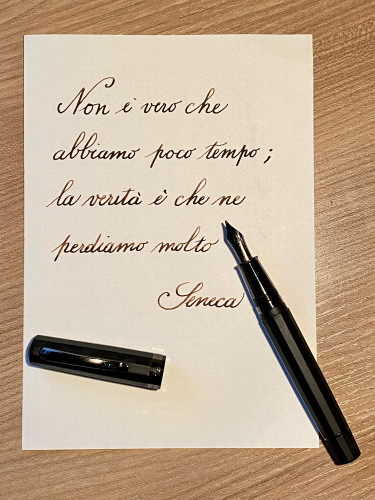 Non è vero che
abbiamo poco tempo ;
la verità è che ne
perdiamo molto
Seneca